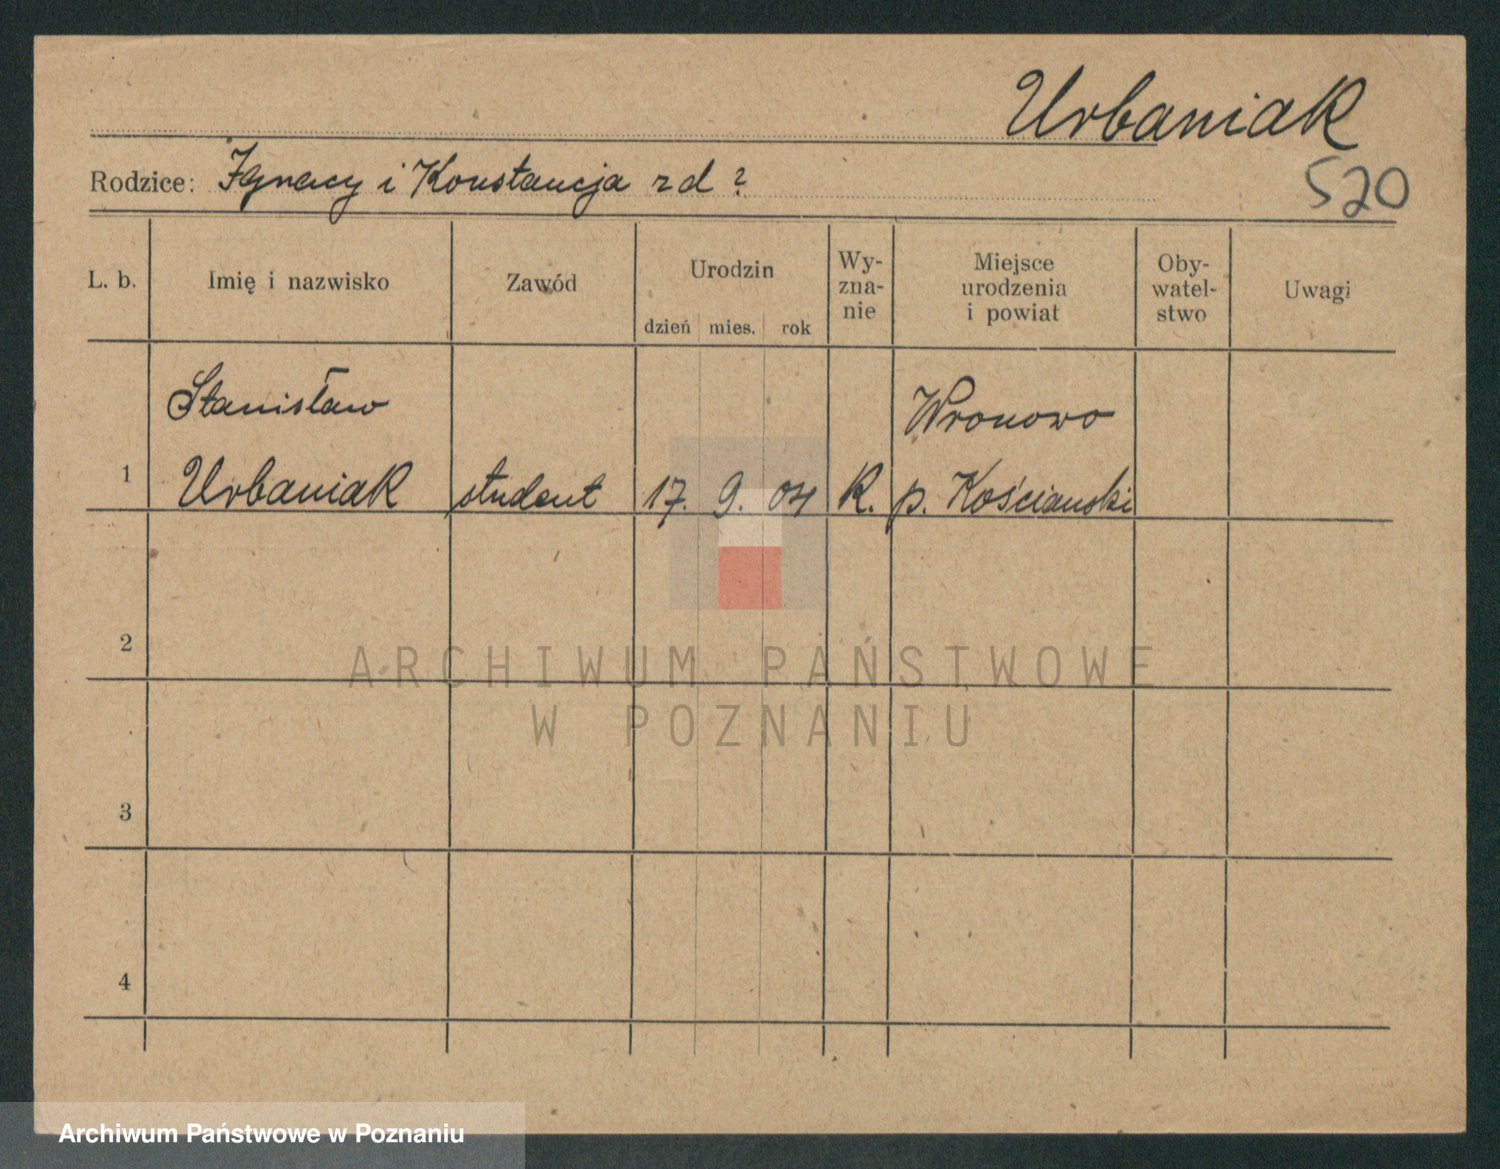 Urbaniak
Rodzice: Ignacy i Konstancja z d ?
520
L. b. Imię i nazwisko Zawód Urodzin Wy-zna-nie Miejsce urodzenia i powiat Oby-watel-stwo Uwagi
dzień mies. rok
Stanisław Wronowo
1 Urbaniak student 17. 9. 04 K. p. Kościański
2
ARCHIWUM PAŃSTWOWE
W POZNANIU
3
4
Archiwum Państwowe w Poznaniu